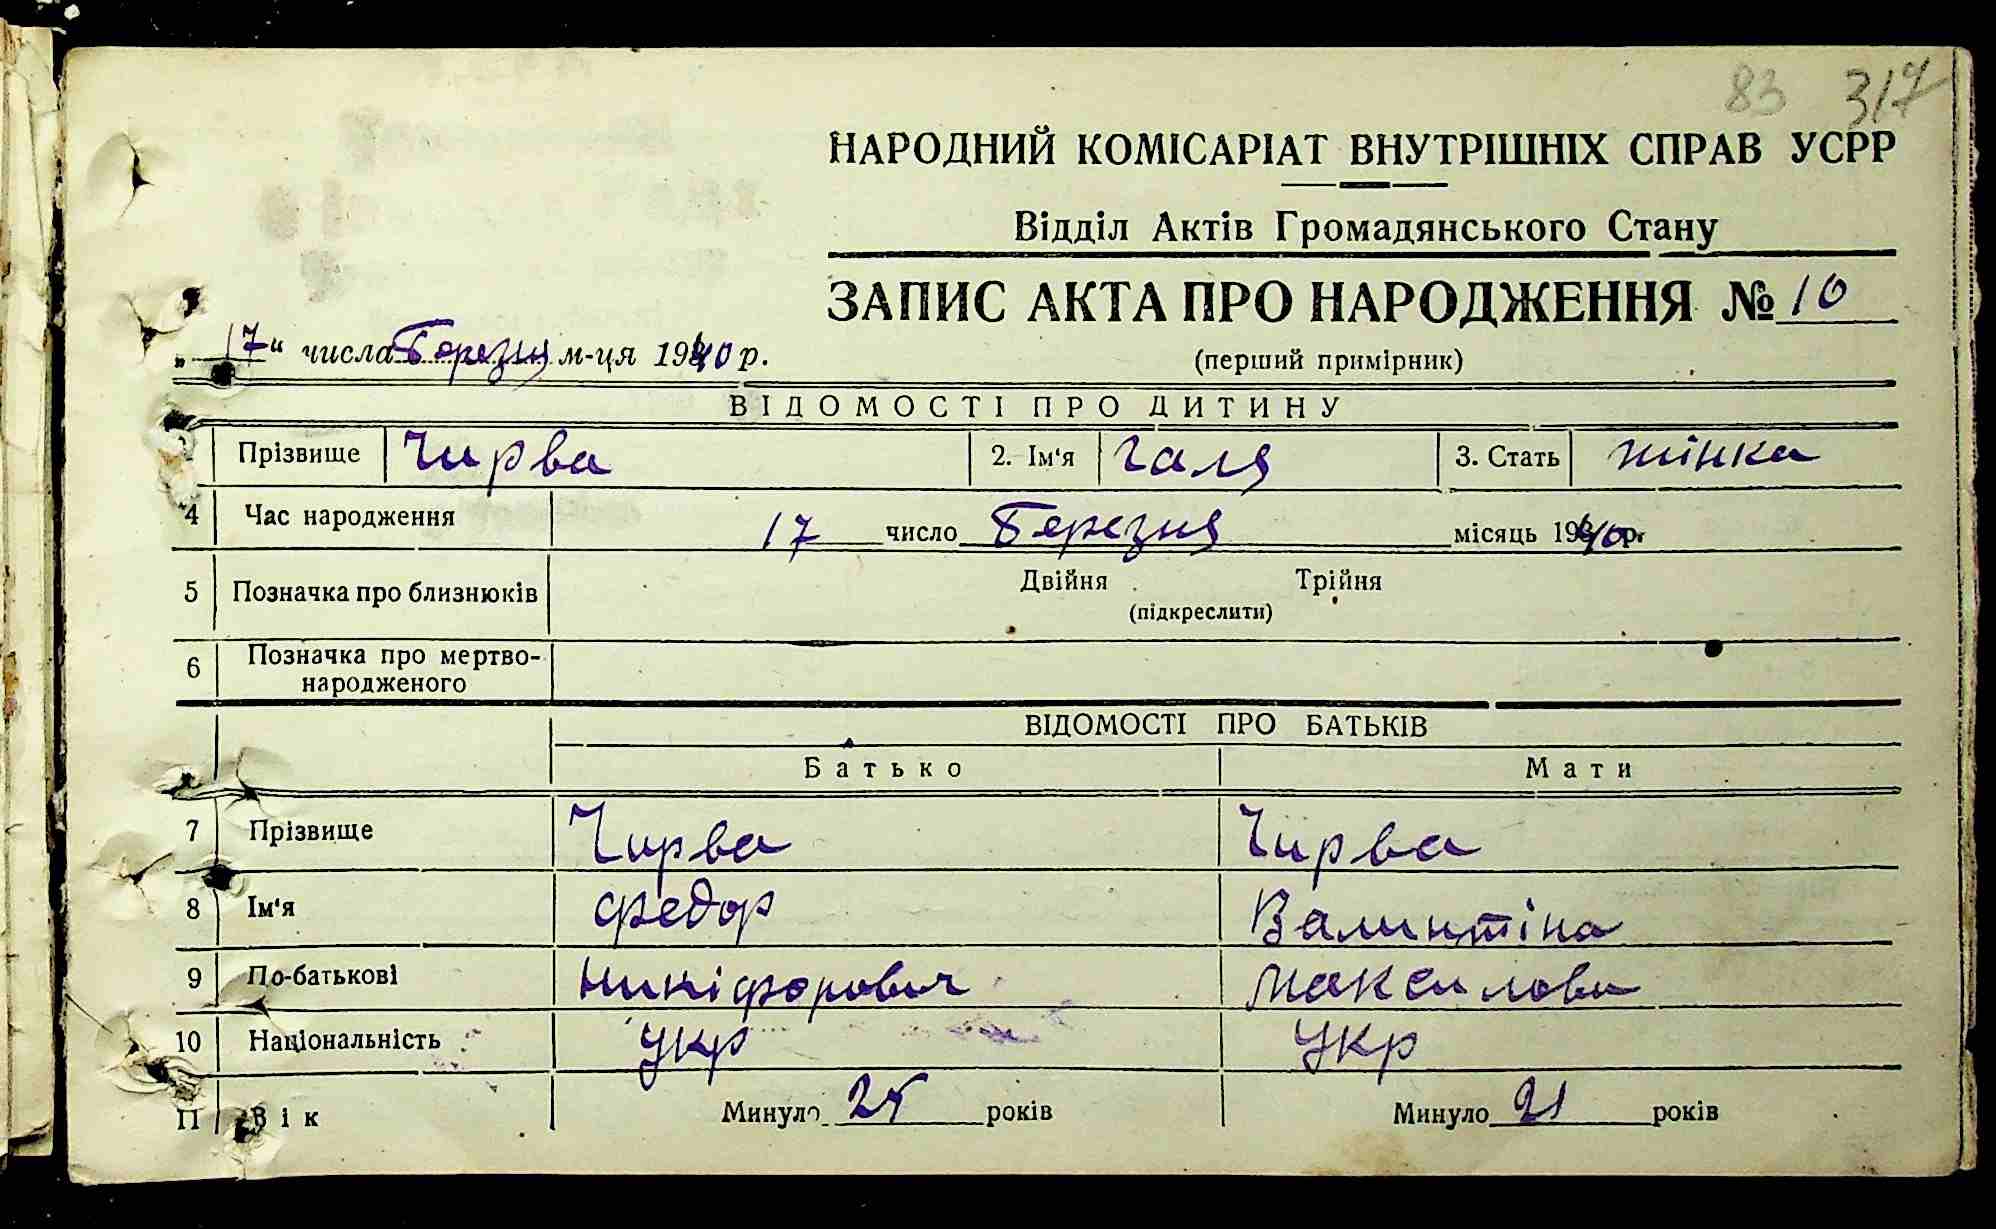 83 317
НАРОДНИЙ КОМІСАРІАТ ВНУТРІШНІХ СПРАВ УСРР
Відділ Актів Громадянського Стану
ЗАПИС АКТА ПРО НАРОДЖЕННЯ № 10
„17" числа Березня м-ця 1940 р.
(перший примірник)
ВІДОМОСТІ ПРО ДИТИНУ
Прізвище Чирва 2. Ім'я Галя 3. Стать жінка
4 Час народження 17 число Березня місяць 1940 р.
5 Позначка про близнюків Двійня Трійня
(підкреслити)
6 Позначка про мертво-
народженого
ВІДОМОСТІ ПРО БАТЬКІВ
Батько Мати
7 Прізвище Чирва Чирва
8 Ім'я Федор Валинтіна
9 По-батькові Никіфорович
10 Національність Укр Укр
11 Вік Минуло 25 років Минуло 21 років